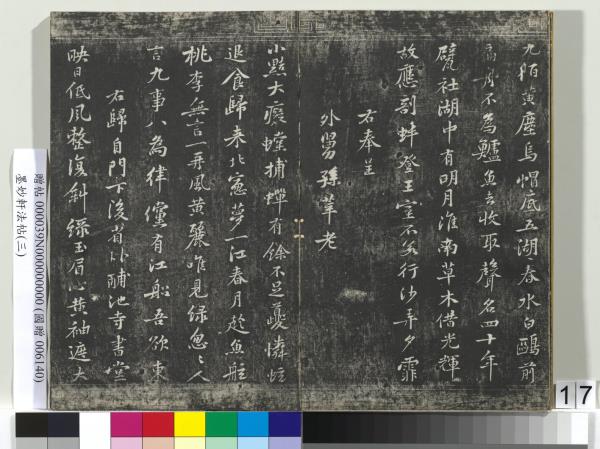 九陌黃塵烏帽底五湖春水白鷗前
扁舟不為鱸魚去收取聲名四十年
甓社湖中有明月淮南草木借光輝
故應剖蚌登王室不若行沙弄夕霏
右奉呈
外舅孫莘老
小黠大癡螳捕蟬有餘不足夔憐蚿
退食歸來北窓夢一江春月趂魚船
桃李無言一再風黃鸝唯見綠怱〻人
言九事八為律儻有江船吾欲東
右歸自門下後省臥酺池寺書堂
映日低風整復斜綠玉眉心黃袖遮大
贈帖 000039N000000000 (國贈 006140)
墨妙軒法帖(三)
17